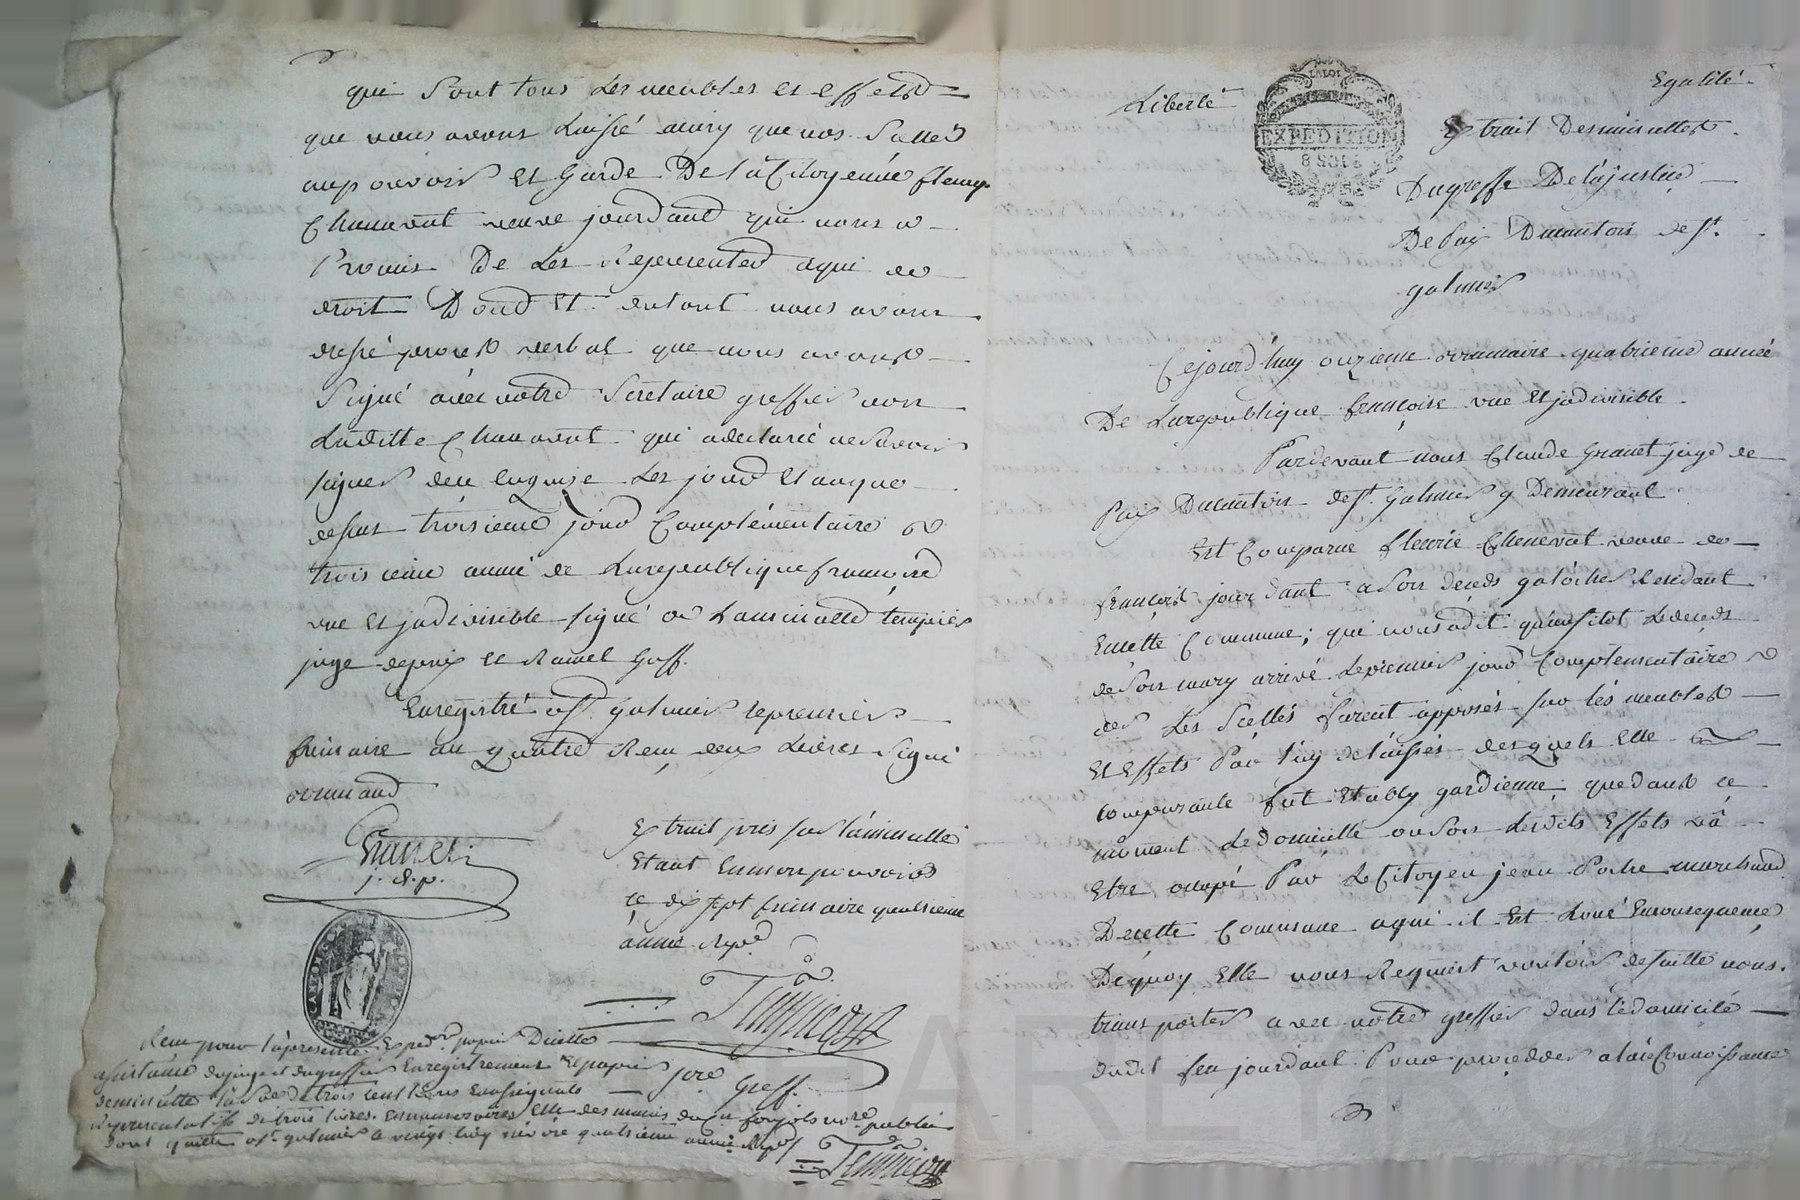 qui sont tous les meubles et effets
que nous avons laissé ainsy que nos scellés
au pouvoir et garde De la Citoyenne fleurye
Chenevat veuve jourdant qui nous a
Promis De les Representer a qui de
droit Dond et du tout nous avons
dressé procest verbal que nous avons
signé avec notre secretaire greffier non
Laditte Chenevat qui a declaré ne savoir
signer de ce enquise les jour et an que
dessus troisieme jour Complémentaire
troisieme année de La republique francoise
une et jndivisible signé a La minutte
juge de paix et Ramel Greff.
Enregistré a St galmier le premier
frimaire an quatre Reçu deux Livres signé
Granet
j. d. p.
Extrait pris sur la minutte
Etant en mon pouvoir
ce dix sept frimaire quatrieme
année Repe
Recu pour la presente Expedon papier D'icelle
assistance du juge et du greffier Enregistrement et papier
de minutte la somme de trois cent livres en assignats
representatifs de trois livres
dont quitte a St galmier le vingt cinq nivose quatrieme année Repe
greff.
Liberté
LA LOI
EXPEDITION
8 SOLS
Egalité
Extrait Des minuttes
Du greffe De la justice
De Paix Du canton de St
galmier
Cejourd'huy onzieme brumaire quatrieme année
De La republique françoise une Et jndivisible.
Pardevant nous Claude Granet juge de
Paix Du canton de St galmier y Demeurant
Est Comparue fleurie Chenevat veuve de
françois jourdant a son deceds galochier Residant
En cette Commune; qui nous a dit qu'aussitot Le deceds
de son mary arrivé Le premier jour Complementaire
der Les scellés furent apposés sur les meubles
Et Effets Par luy delaissés desquels Elle
comparante fut Etably gardienne; que dans ce
moment Le domicille ou son Lesdits Effets va
Etre occupé Par Le Citoyen jean Poche marchand
De cette Commune a qui il Est Loué En consequence
De quoy Elle nous Requiert vouloir de suitte nous
transporter avec notre greffier dans le domicile
dudit feu jourdant Pour proceder a la reconnoissance